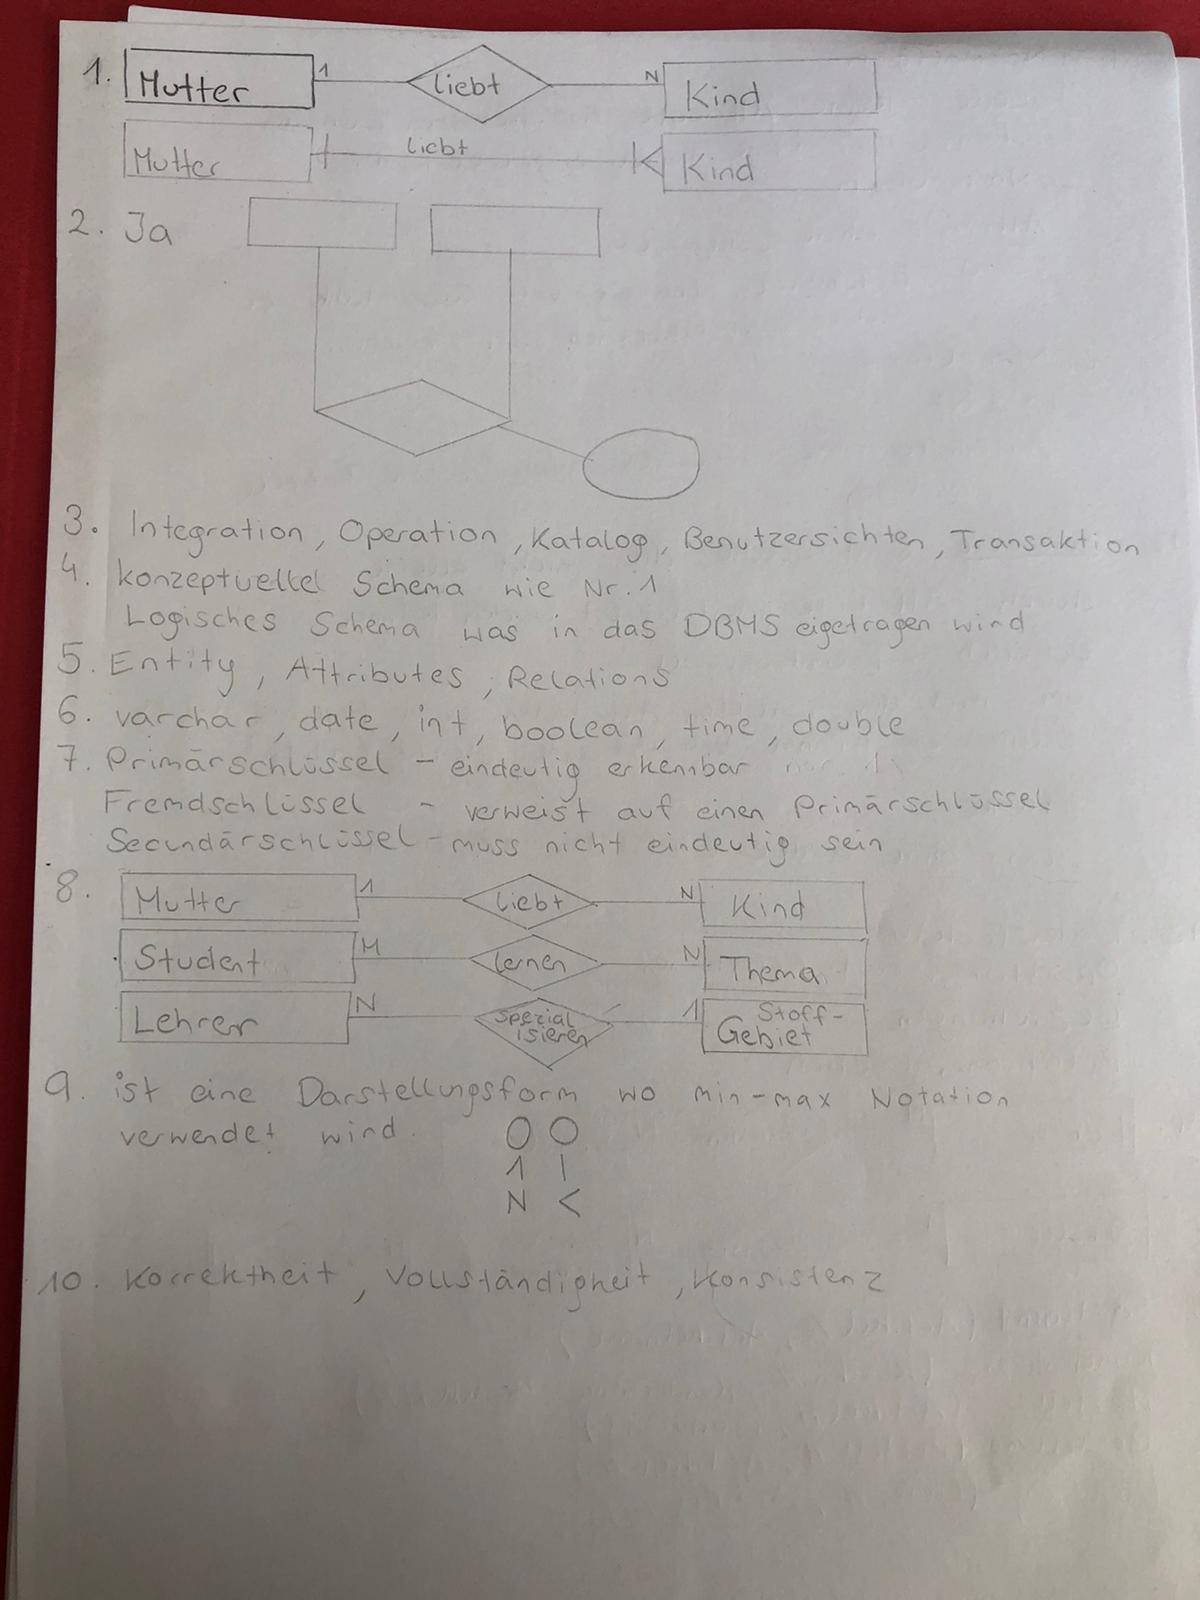 1. Mutter 1 liebt N Kind
Mutter liebt Kind
2. Ja
3. Integration, Operation, Katalog, Benutzersichten, Transaktion
4. konzeptuellel Schema wie Nr. 1
Logisches Schema was in das DBMS eigetragen wird
5. Entity, Attributes, Relations
6. varchar, date, int, boolean, time, double
7. Primärschlüssel - eindeutig erkennbar
Fremdschlüssel - verweist auf einen Primärschlüssel
Secundärschlüssel - muss nicht eindeutig sein
8. Mutter 1 liebt N Kind
Student M lernen N Thema
Lehrer N spezial isieren 1 Stoff-
Gebiet
9. ist eine Darstellungsform wo min-max Notation
verwendet wird.
0 O
1 |
N <
10. Korrektheit, Vollständigheit, Konsistenz